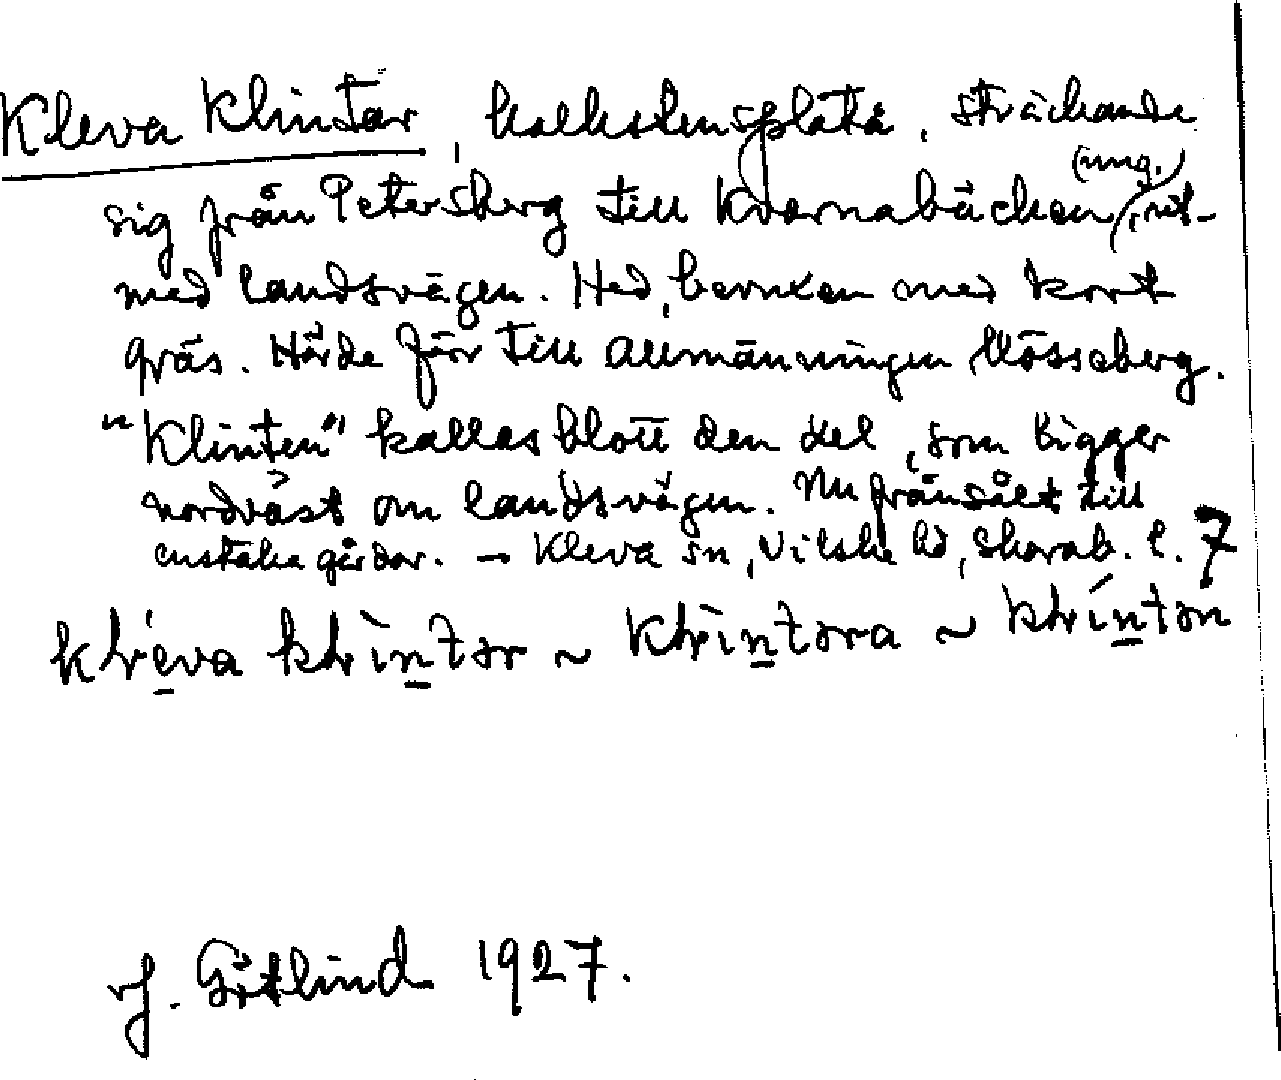 Kleva Klintar, kalkstensplatå, sträckande
(ung.)
sig från Petersberg till Kvarnabäcken, ut-
med landsvägen. Hed, bevuxen med kort
gräs. Hörde förr till allmänningen Mösseberg.
"Klinten" kallas blott den del, som ligger
nordväst om landsvägen. Nu frånsålt till
enstaka gårdar. – Kleva sn, Vilske hd, Skarab. l. 7
~ ~
J. Götlind 1927.